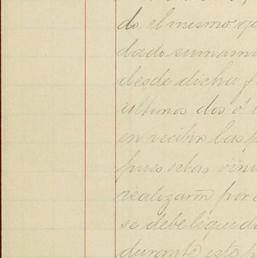 do el mismo que
dado sumam
desde dicha f
ultimos dos ó
en recibir las p
pues estas vin
realizarm por
se debe liquid
durante esta p